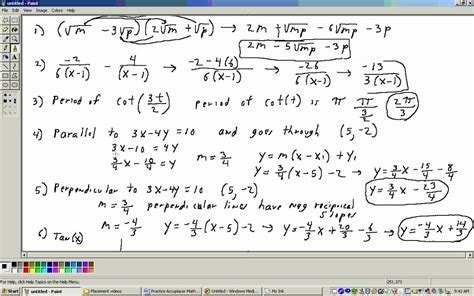 untitled - Paint
File Edit View Image Colors Help
1) (√m - 3√p)(2√m + √p) → 2m + √mp - 6√mp - 3p
2m - 5√mp - 3p
2) -2/6(x-1) - 4/(x-1) → -2-4(6)/6(x-1) → -26/6(x-1) → -13/3(x-1)
3) Period of cot(3t/2) period of cot(t) is π π/(3/2) 2π/3
4) Parallel to 3x-4y=10 and goes through (5,-2)
3x-10 = 4y
3/4x - 10/4 = y m = 3/4 y = m(x-x₁) + y₁
y = 3/4(x-5) - 2 → y = 3/4x - 15/4 - 8/4
y = 3/4x - 23/4
5) Perpendicular to 3x-4y=10 (5,-2)
m = 3/4 perpendicular lines have neg reciprical slopes
m = -4/3 y = -4/3(x-5) - 2 → y = -4/3x + 20/3 - 6/3 → y = -4/3x + 14/3
6) Tan(x)
For Help, click Help Topics on the Help Menu.
start Practice Accuplacer Math... Placement videos Untitled - Windows Med... My Ink untitled - Paint 9:42 AM